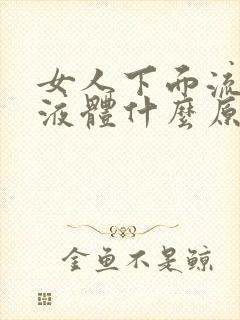 女人下而流
液體什麼原
金魚不是鯨